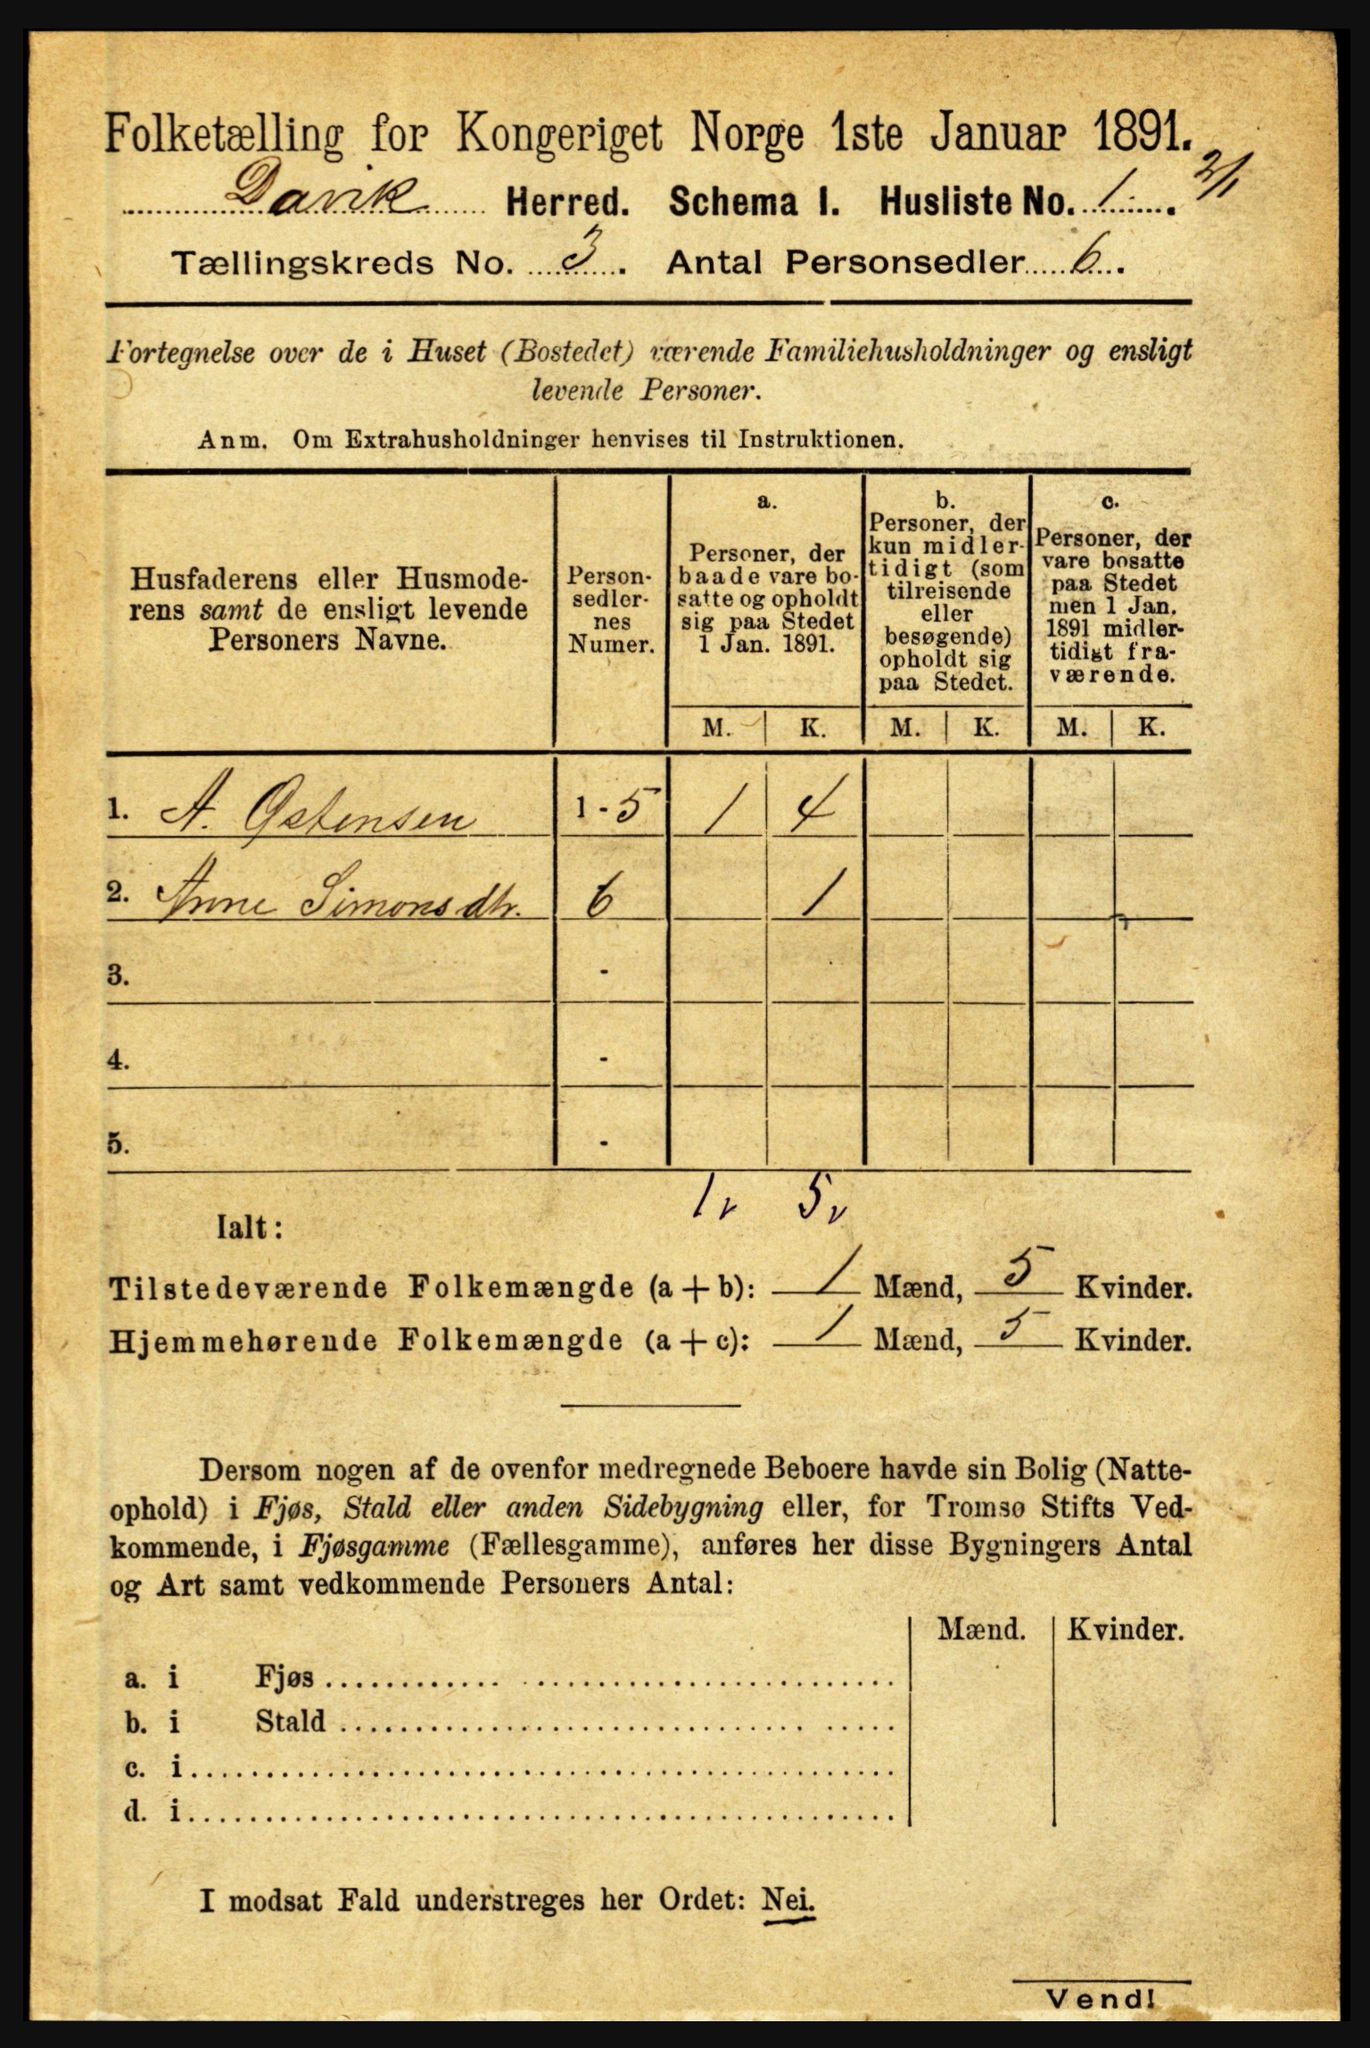 Folketælling for Kongeriget Norge 1ste Januar 1891.
Davik Herred. Schema I. Husliste No. 1. 2/1
Tællingskreds No. 3. Antal Personsedler 6.
Fortegnelse over de i Huset (Bostedet) værende Familiehusholdninger og ensligt
levende Personer.
Anm. Om Extrahusholdninger henvises til Instruktionen.
Husfaderens eller Husmode-
rens samt de ensligt levende
Personers Navne.
Person-
sedler-
nes
Numer.
a.
Personer, der
baade vare bo-
satte og opholdt
sig paa Stedet
1 Jan. 1891.
b.
Personer, der
kun midler-
tidigt (som
tilreisende
eller
besøgende)
opholdt sig
paa Stedet.
c.
Personer, der
vare bosatte
paa Stedet
men 1 Jan.
1891 midler-
tidigt fra-
værende.
M. K. M. K. M. K.
1. A. Østensen 1-5 1 4
2. Anne Simonsdtr. 6 1
3. -
4. -
5. -
1v 5v
Ialt:
Tilstedeværende Folkemængde (a+b): 1 Mænd, 5 Kvinder.
Hjemmehørende Folkemængde (a+c): 1 Mænd, 5 Kvinder.
Dersom nogen af de ovenfor medregnede Beboere havde sin Bolig (Natte-
ophold) i Fjøs, Stald eller anden Sidebygning eller, for Tromsø Stifts Ved-
kommende, i Fjøsgamme (Fællesgamme), anføres her disse Bygningers Antal
og Art samt vedkommende Personers Antal:
Mænd. Kvinder.
a. i Fjøs
b. i Stald
c. i
d. i
I modsat Fald understreges her Ordet: Nei.
Vend!